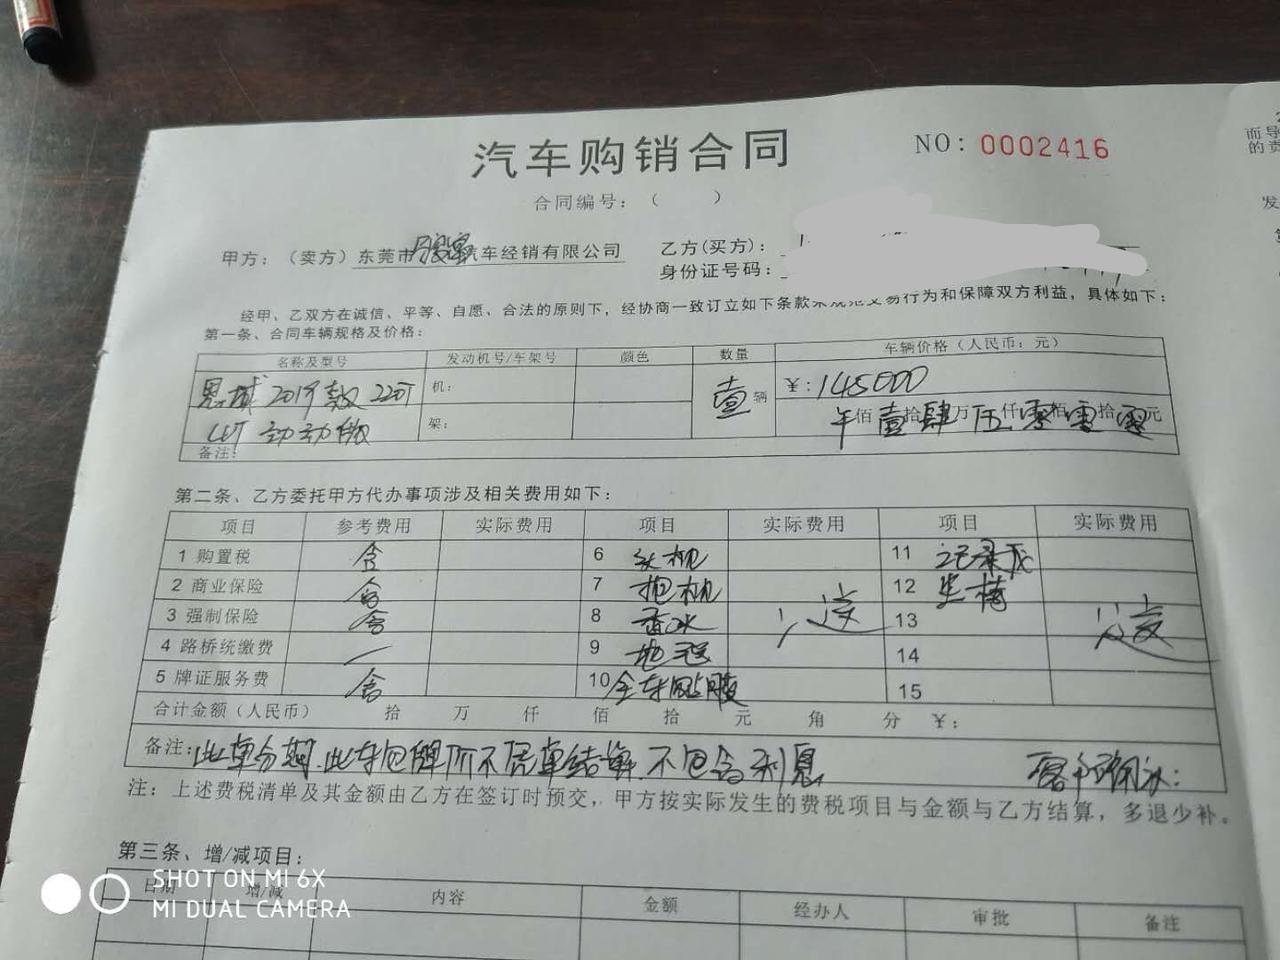 汽车购销合同
NO: 0002416
合同编号：（ ）
甲方：（卖方）东莞市 汽车经销有限公司
乙方(买方)：
身份证号码：
经甲、乙双方在诚信、平等、自愿、合法的原则下，经协商一致订立如下条款来规范交易行为和保障双方利益，具体如下：
第一条、合同车辆规格及价格：
名称及型号 发动机号/车架号 颜色 数量 车辆价格（人民币：元）
2019款 220T 机： 壹辆 ￥：145000
动 架： 佰壹拾肆万伍仟零佰零拾零元
备注：
第二条、乙方委托甲方代办事项涉及相关费用如下：
项目 参考费用 实际费用 项目 实际费用 项目 实际费用
1 购置税 含 6 头枕 11 记录仪
2 商业保险 含 7 抱枕 12 坐椅
3 强制保险 含 8 香水 送 13 送
4 路桥统缴费 / 9 地毯 14
5 牌证服务费 含 10 全车贴膜 15
合计金额（人民币） 拾 万 仟 佰 拾 元 角 分 ￥：
备注：此单分期.此车包牌价不凭单结算.不包含利息 客户确认：
注：上述费税清单及其金额由乙方在签订时预交，甲方按实际发生的费税项目与金额与乙方结算，多退少补。
第三条、增/减项目：
日期 增/减 内容 金额 经办人 审批 备注
而导
的责
发
SHOT ON MI 6X
MI DUAL CAMERA